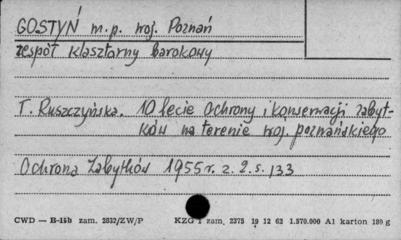 GOSTYŃ m.p. woj. Poznań
zespół klasztorny barokowy
T. Ruszczyńska. 10 lecie Ochrony i konserwacji zabyt-
ków na terenie woj. poznańskiego
Ochrona Zabytków 1955 r. z. 2. s. 133
CWD — B-15b zam. 2832/ZW/P KZG 1 zam. 2375 19 12 62 1.570.000 A1 karton 180 g